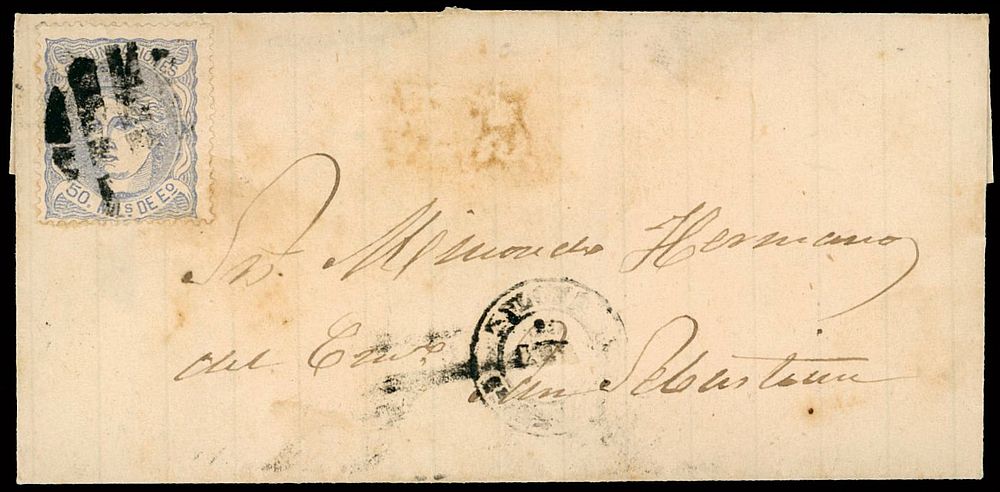 COMUNICACIONES
50. MILS DE Eº
Srs. Mimondo Hermanos
del Comº
San Sebastian